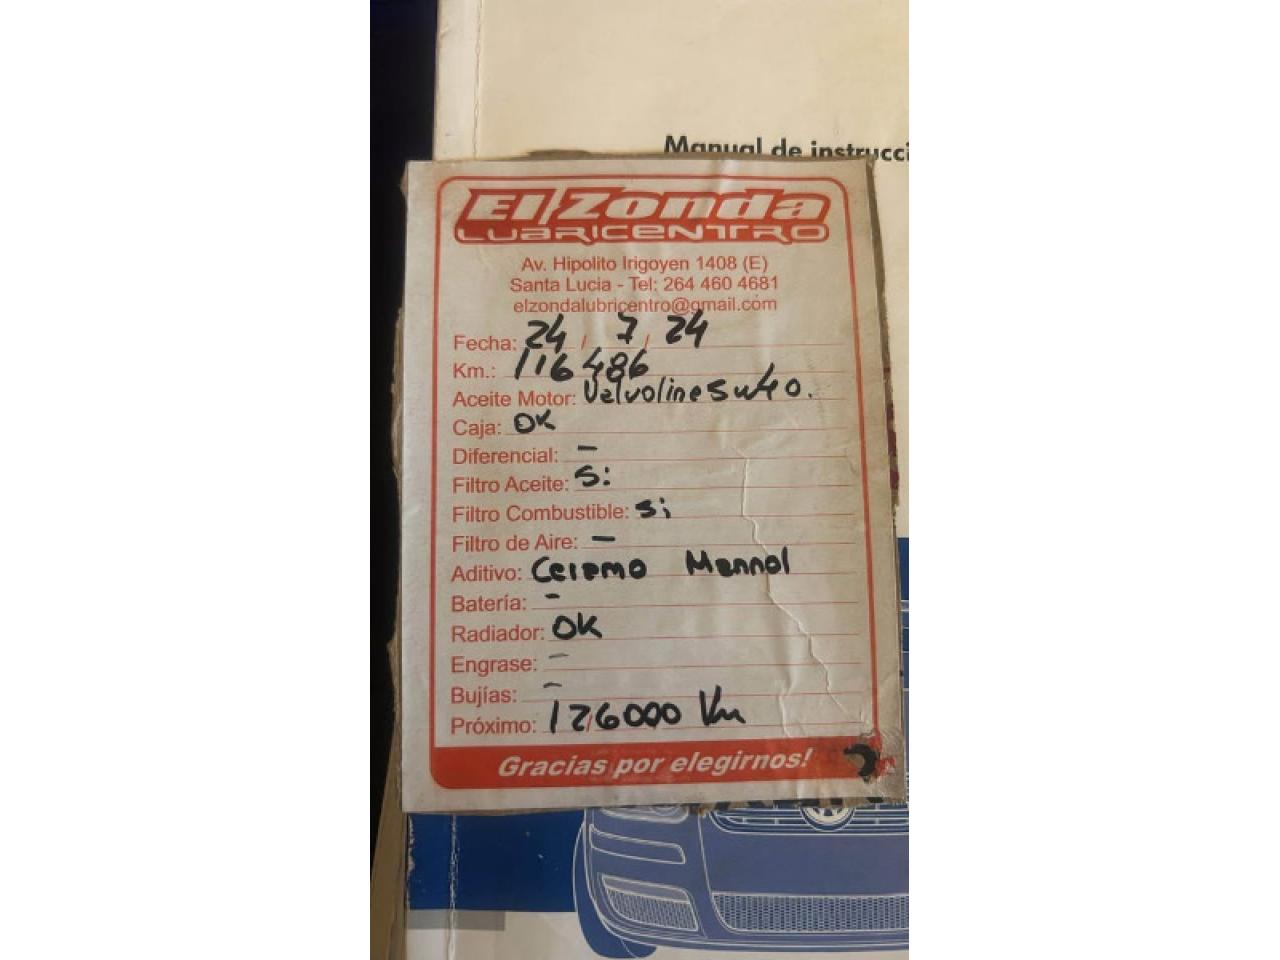 Manual de instrucci
El Zonda
LUBRICENTRO
Av. Hipolito Irigoyen 1408 (E)
Santa Lucia - Tel: 264 460 4681
elzondalubricentro@gmail.com
Fecha: 24 / 7 / 24
Km.: 116486
Aceite Motor: Valvoline 5w40.
Caja: OK
Diferencial: -
Filtro Aceite: Si
Filtro Combustible: Si
Filtro de Aire: -
Aditivo: Ceramo Mannol
Batería: -
Radiador: OK
Engrase: -
Bujías: -
Próximo: 126000 Km
Gracias por elegirnos!